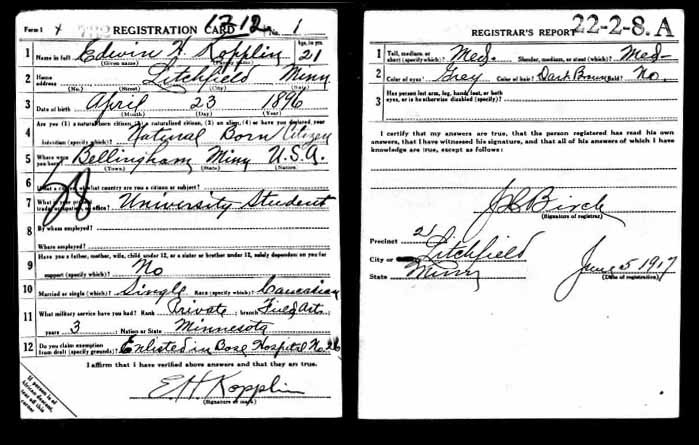 Form 1 REGISTRATION CARD No. 1
1712
1 Name in full Edwin H. Kopplin Age, in yrs. 21
(Given name) (Family name)
2 Home address Litchfield Minn
(No.) (Street) (City) (State)
3 Date of birth April 23 1896
(Month) (Day) (Year)
4 Are you (1) a natural born citizen, (2) a naturalized citizen, (3) an alien, (4) or have you declared your
intention (specify which)? Natural Born Citizen
5 Where were you born? Bellingham Minn U.S.A.
(Town) (State) (Nation)
6 If not a citizen, of what country are you a citizen or subject?
7 What is your present trade, occupation, or office? University Student
8 By whom employed?
Where employed?
9 Have you a father, mother, wife, child under 12, or a sister or brother under 12, solely dependent on you for
support (specify which)? No
10 Married or single (which)? Single Race (specify which)? Caucasian
11 What military service have you had? Rank Private ; branch Field Art.
years 3 ; Nation or State Minnesota
12 Do you claim exemption from draft (specify grounds)? Enlisted in Base Hospital No. 26
I affirm that I have verified above answers and that they are true.
E.H. Kopplin
(Signature or mark)
If person is of African descent, tear off this corner
78
REGISTRAR'S REPORT 22-2-8. A
1 Tall, medium, or short (specify which)? Med. Slender, medium, or stout (which)? Med-
2 Color of eyes? Grey Color of hair? Dark Brown Bald? No.
3 Has person lost arm, leg, hand, foot, or both
eyes, or is he otherwise disabled (specify)?
I certify that my answers are true, that the person registered has read his own
answers, that I have witnessed his signature, and that all of his answers of which I have
knowledge are true, except as follows:
Birch
(Signature of registrar)
Precinct 21
City or Litchfield
State Minn
June 5 1917
(Date of registration)